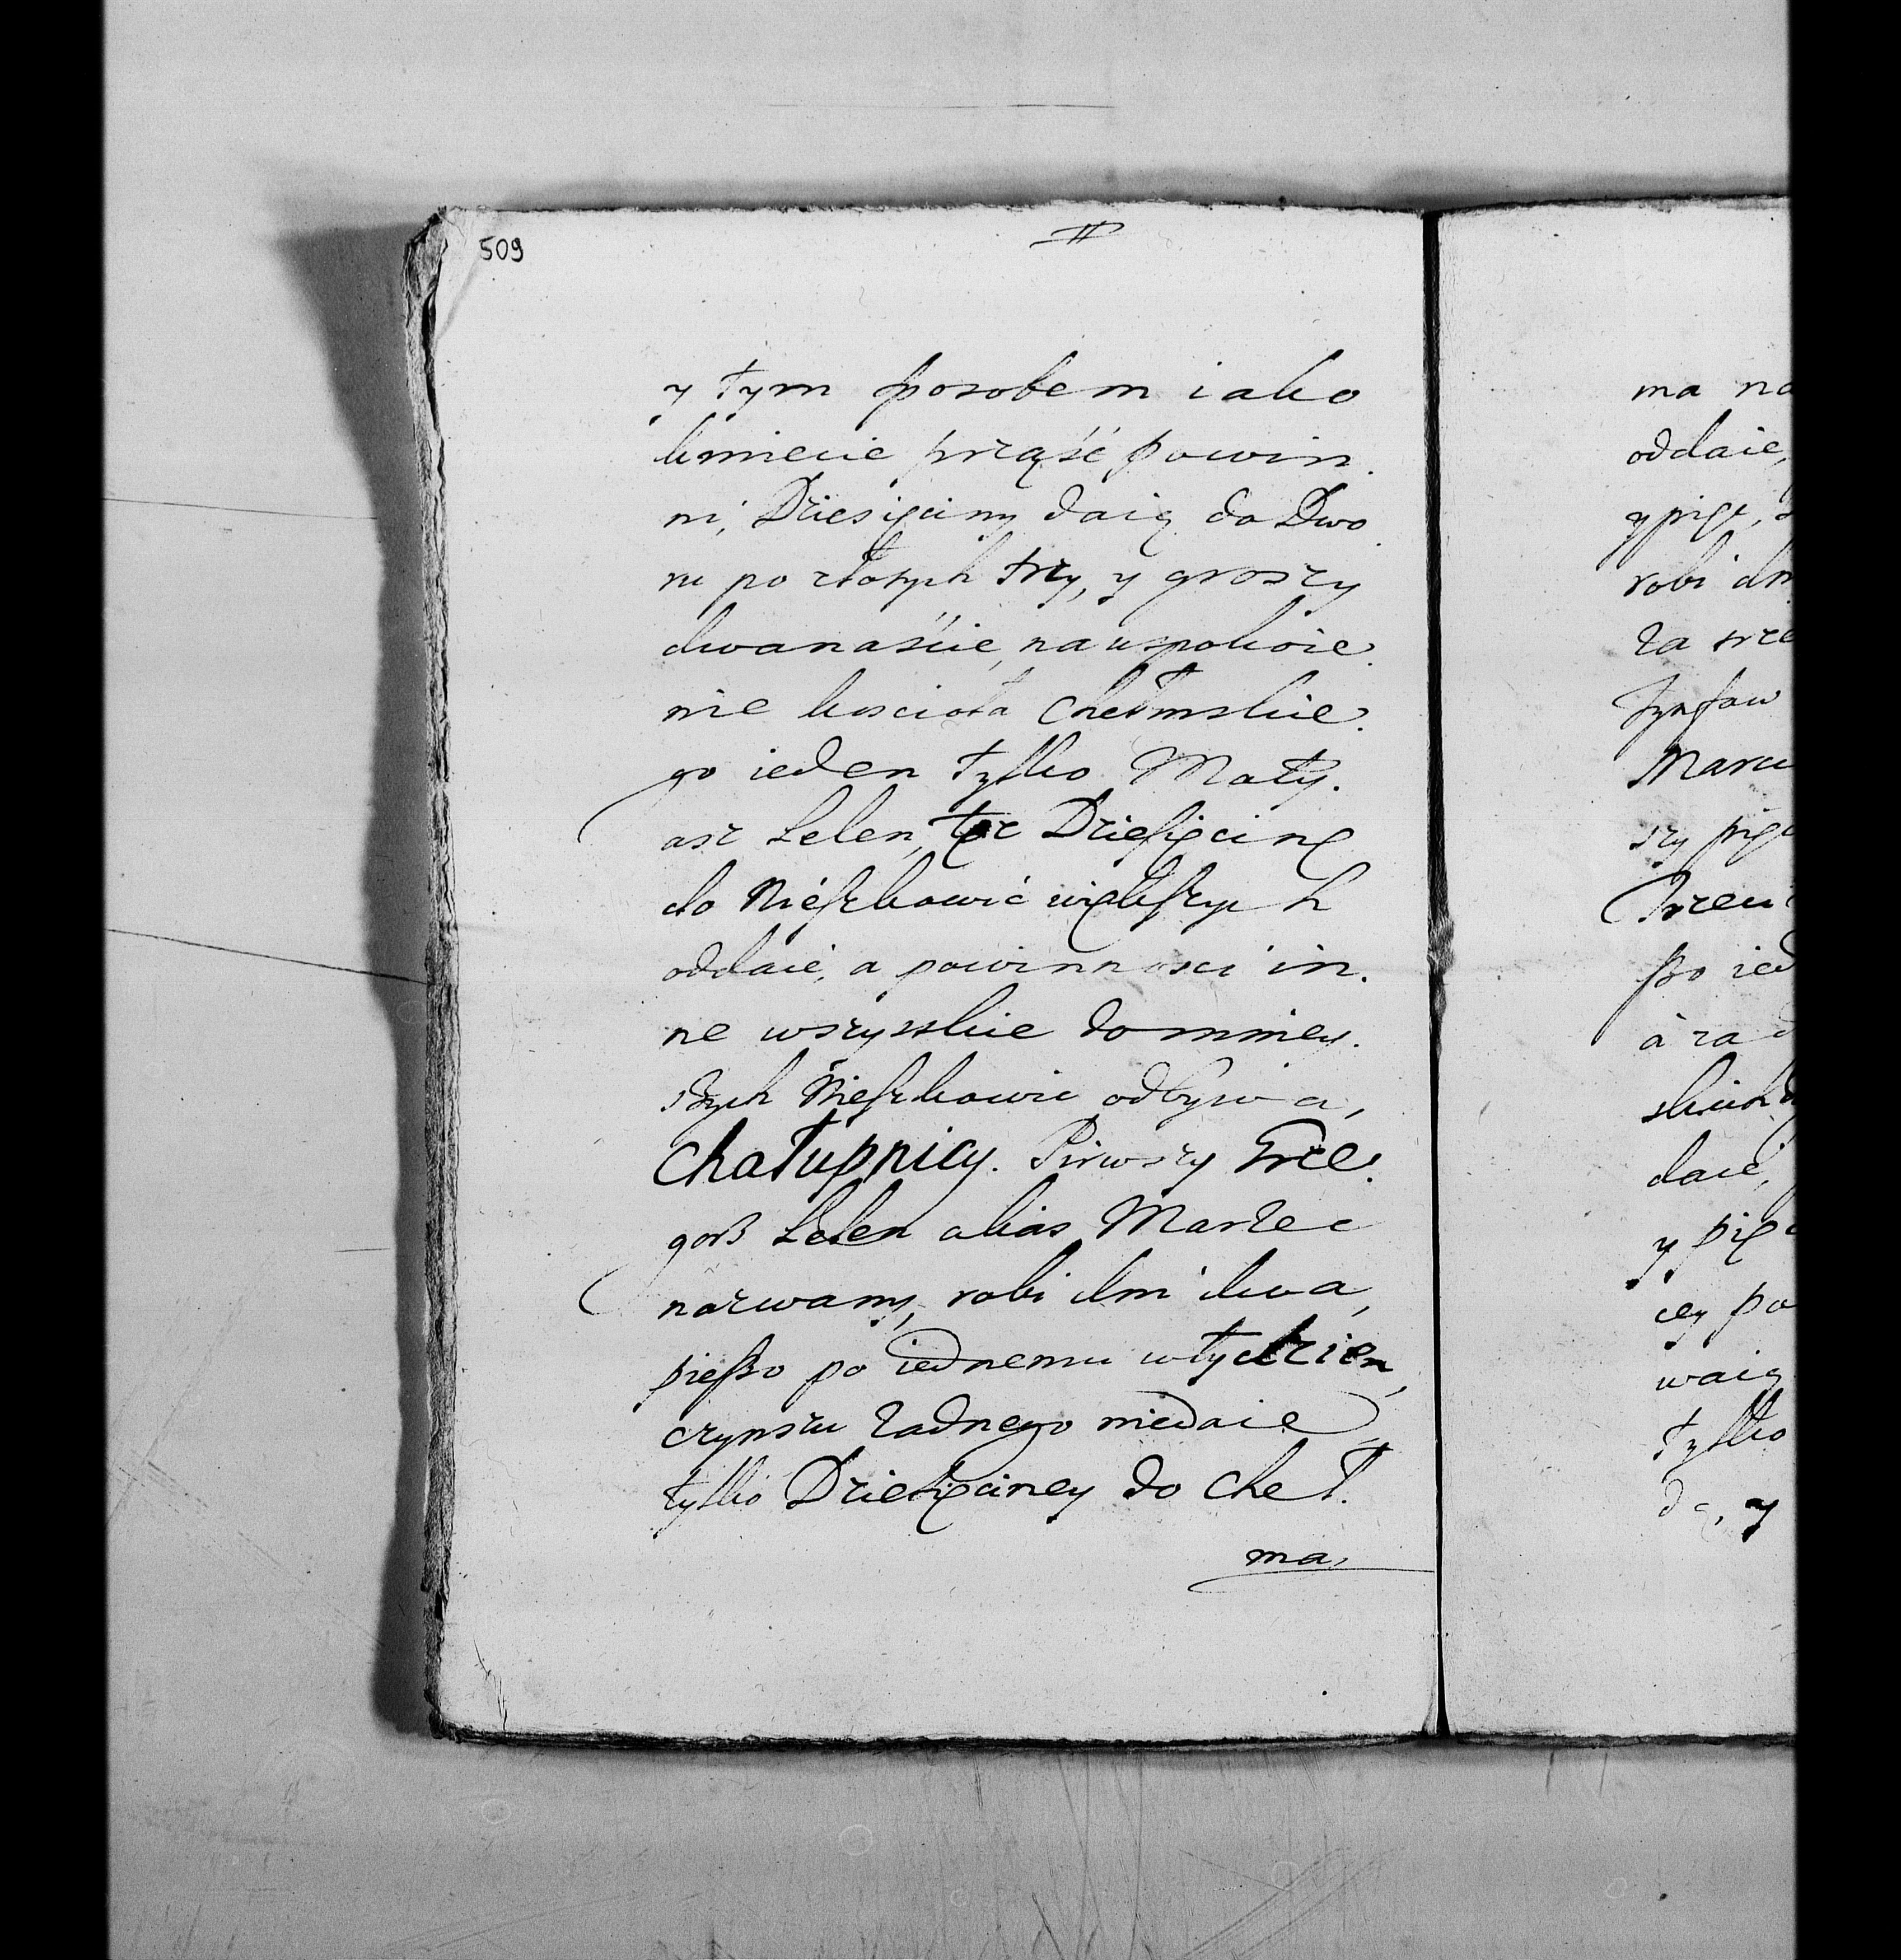 509
y tym sposobem iako
kmiecie prząść powin.
ni, Dziesięciny daią do Dwo
ru po złotych trzy, y groszy
dwanaście, na uspokoie.
nie koscioła Chełmskie.
go ieden tylko Maty.
asz Lelen, tęz Dziesięcinę
do Nieszkowic większych
oddaie, a powinnosci in.
ne wszystkie do mniey.
szych Nieszkowic odbywa,
Chałupnicy. Pirwszy Grze.
gorz Lelen alias Marzec
nazwany, robi dni dwa,
pieszo po iednemu w tydzien,
czynszu żadnego niedaie
tylko Dziesięciney do Cheł.
ma,
ma na
oddaie,
y pięc,
robi dn
za
Marci
szy pię
szo ied
à za
daie,
y pię
cey po
waią
tylko
dą, y